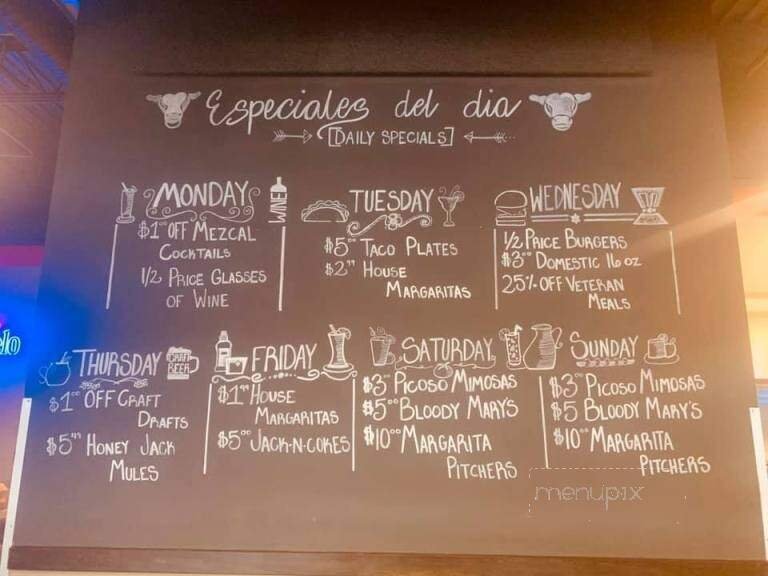 Especiales del dia
[DAILY SPECIALS]
MONDAY
WINE
$1⁰⁰ OFF MEZCAL
COCKTAILS
1/2 PRICE GLASSES
OF WINE
TUESDAY
$5⁰⁰ TACO PLATES
$2⁹⁹ HOUSE
MARGARITAS
WEDNESDAY
1/2 PRICE BURGERS
$3⁰⁰ DOMESTIC 16 OZ
25% OFF VETERAN
MEALS
THURSDAY
CRAFT
BEER
$1⁰⁰ OFF CRAFT
DRAFTS
HONEY JACK
MULES
FRIDAY
HOUSE
MARGARITAS
$5⁰⁰ JACK-N-COKES
SATURDAY
$3⁰⁰ PICOSO MIMOSAS
$5⁰⁰ BLOODY MARY'S
$10⁰⁰ MARGARITA
PITCHERS
SUNDAY
$3⁰⁰ PICOSO MIMOSAS
$5 BLOODY MARY'S
$10⁰⁰ MARGARITA
PITCHERS
elo
menupix